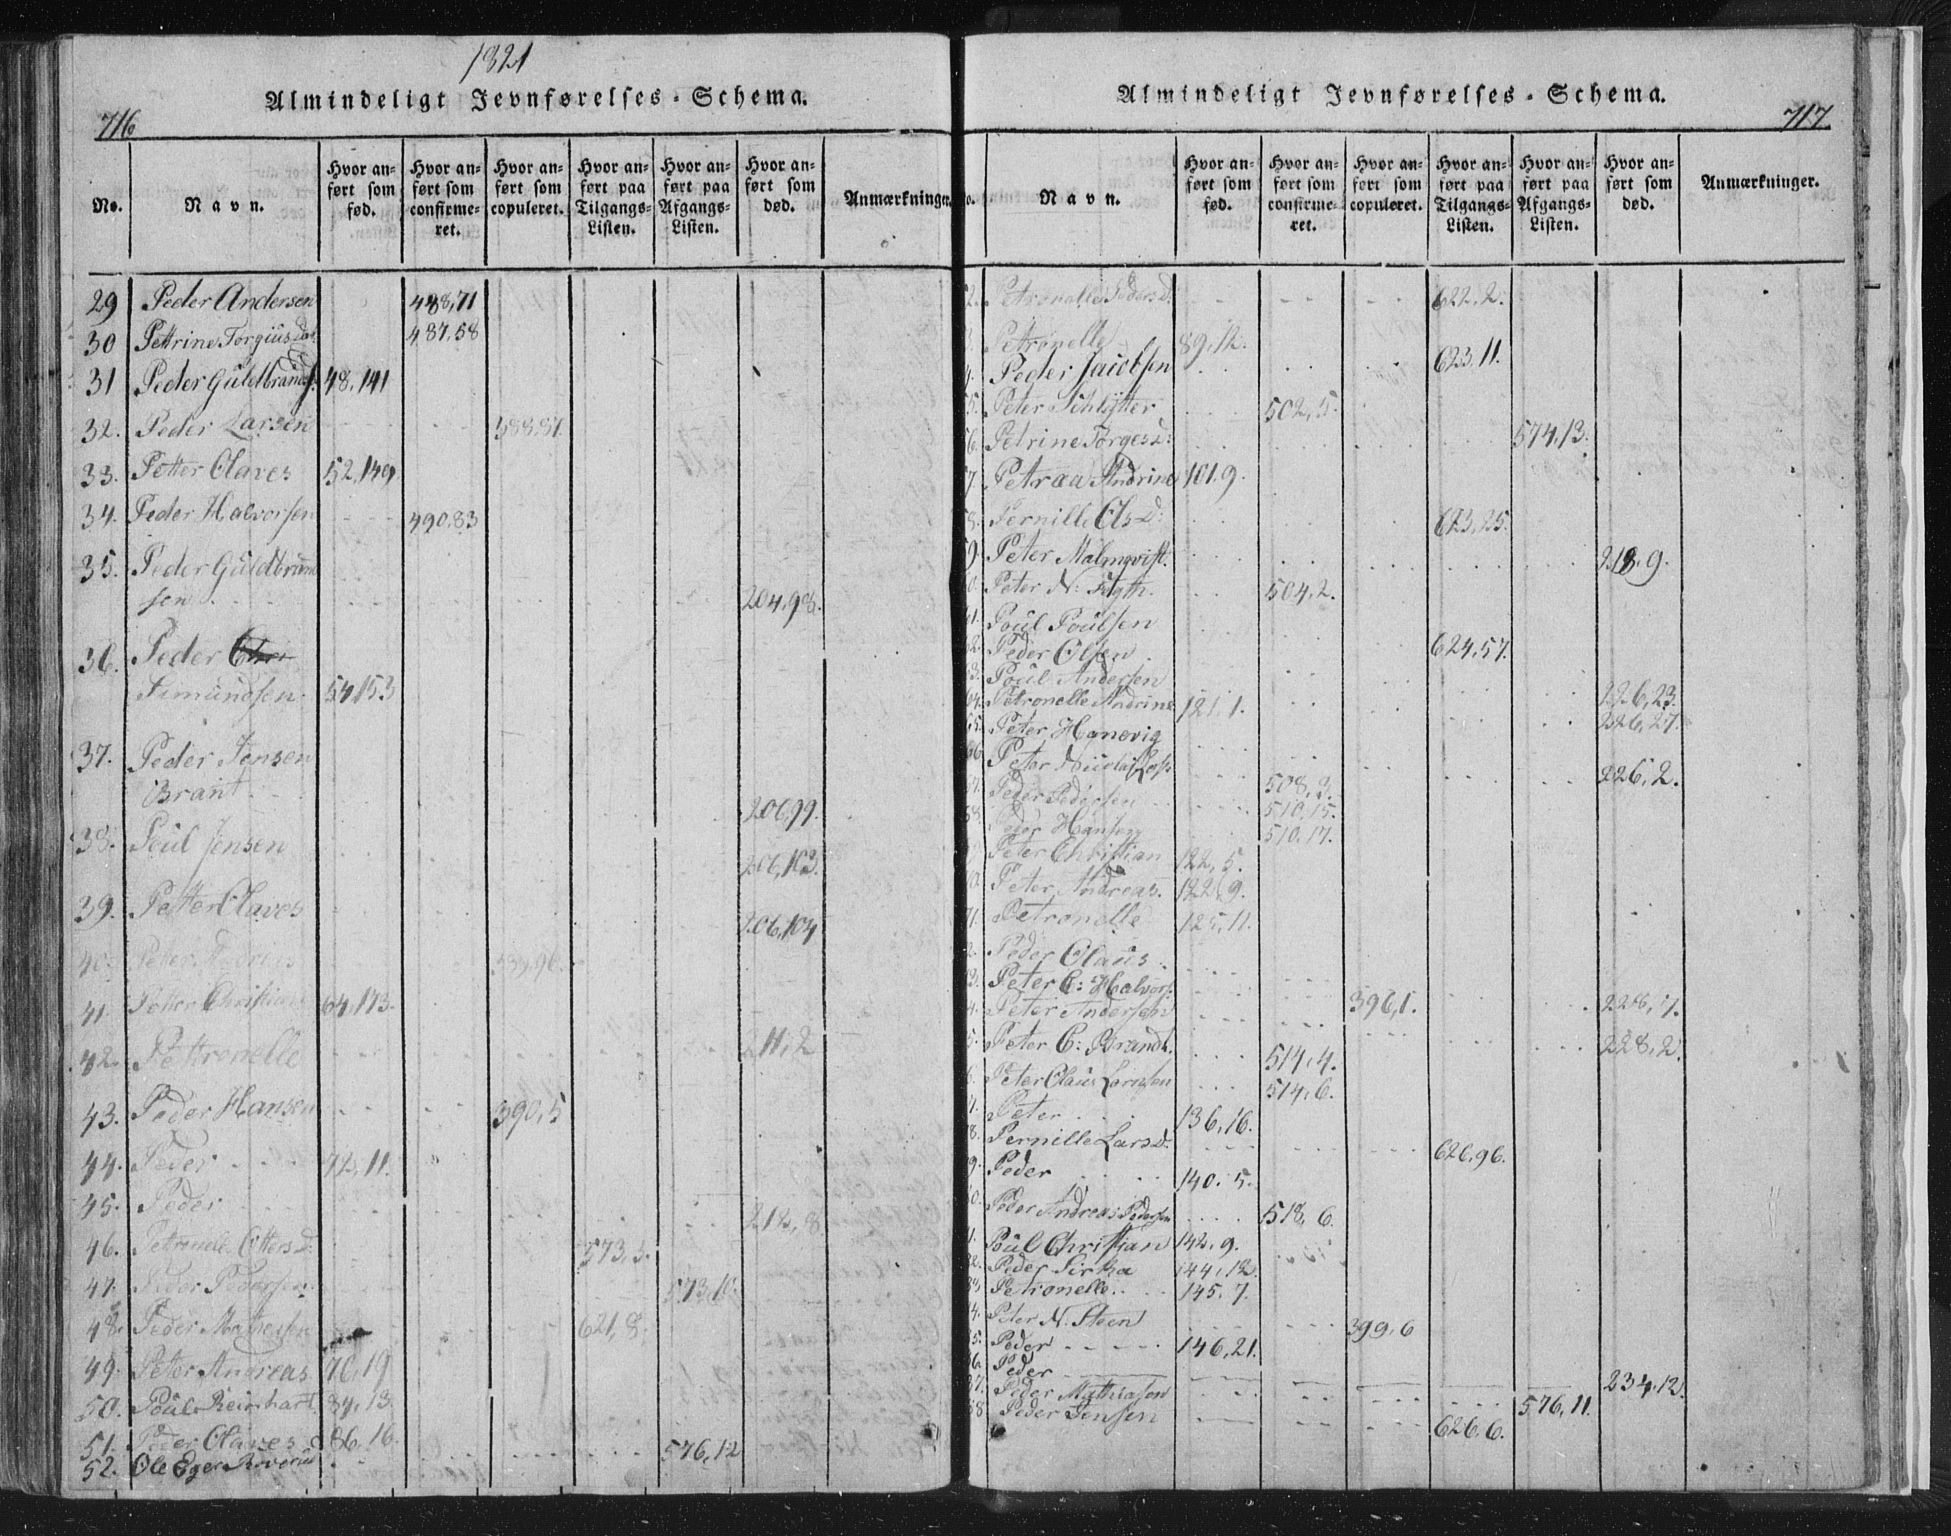 1821
Almindeligt Jevnførelses-Schema.
716
No.
Navn.
Hvor anført som fød.
Hvor anført som confirmeret.
Hvor anført som copuleret.
Hvor anført paa Tilgangs-Listen.
Hvor anført paa Afgangs-Listen.
Hvor anført som død.
Anmærkninger.
29 Peder Andersen 448,71
30 Pettrine Torgius 487,58
31 Peder Güldbrands. 48,141
32. Peder Larsen 388,87
33. Petter Claves 52,149
34. Peder Halvorsen 490,83
35. Peder Güldbrand
sen 204,98.
36. Peder
Simundsen 54,153
37. Peder Jensen
Brant 206,99
38. Poül Jensen 206,103.
39. Petter Claves 206,104
40. Petter
41. Petter Christian 64,173.
42. Pettronelle 211,2
43. Peder Hansen 390,5
44. Peder 72,11.
45. Peder 212,8
46. 573,
47. Peder Pedersen 573,10.
48. Peder 621,8.
49. Peter Andreas 76,19
50. Poül Reinhart 84,13.
51. Peder Claves 86,16.
52. Ole Eger 576,12
Almindeligt Jevnførelses-Schema.
717.
No.
Navn.
Hvor anført som fød.
Hvor anført som confirmeret.
Hvor anført som copuleret.
Hvor anført paa Tilgangs-Listen.
Hvor anført paa Afgangs-Listen.
Hvor anført som død.
Anmærkninger.
2. Petronelle Pedersd. 622,2.
Petronelle 89,12.
4. Peder Jacobsen 623,11.
5. Peter Schlytter 502,5.
6. Petrine Torgesd: 574,13.
7. Petraa Andrine 101.9.
8. Pernille Olsd: 623,25.
9. Peter Malmqvist. 218.9.
0. Peter N: 504,2.
61. Poül Poülsen
62. Peder Olsen 624,57.
63. Poül Andersen 226,23.
64. Petronelle Andrine 121,1.
65. Peter Hanevig 226,27.
66. Peter 226,2.
Peder Pedersen 508,3.
510,15.
68. Peder Hansen 510,17.
Peter Christian 122,5.
0. Peter Andreas. 122,9.
71. Petronelle 125,11.
2. Peder Claüs
3. Peter C: Halvors.
4. Peter Andersen 396,1. 228,7.
5. Peter C: Brandt. 514,4. 228,2.
6. Peter Claus 514,6.
7. Peter 136,16.
8. Pernille Larsd. 626,96.
9. Peder 140.5.
0. Peder Andreas Pedersen 518,6.
1. Poül Christian 142,9.
82. Peder 144,12.
83. Petronelle 145,7.
4. Peter N. Steen 399,6
5. Peder 146,21.
6. Peder 234,12.
7. Peder Mathiasen 576,11.
88 Peder Jensen 626.6.